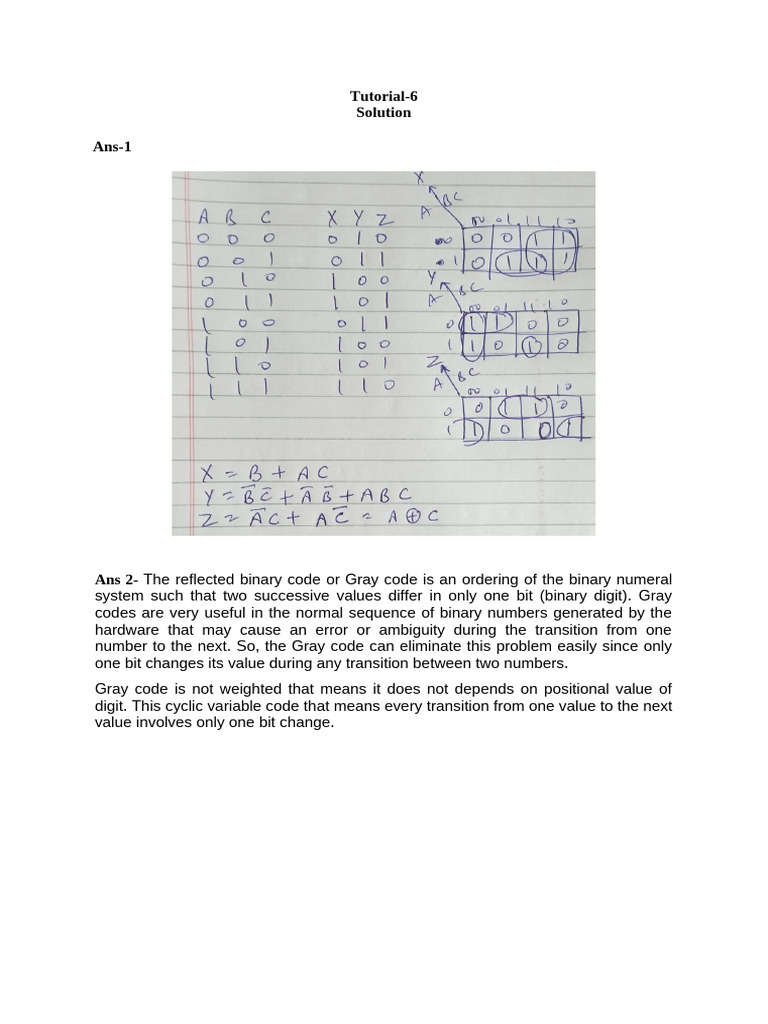 Tutorial-6
Solution
Ans-1
A B C X Y Z
0 0 0 0 1 0
0 0 1 0 1 1
0 1 0 1 0 0
0 1 1 1 0 1
1 0 0 0 1 1
1 0 1 1 0 0
1 1 0 1 0 1
1 1 1 1 1 0
X
BC
A
00 01 11 10
0 0 1 1
1 0 1 1 1
Y
BC
A
00 01 11 10
0 1 1 0 0
1 1 0 1 0
Z
BC
A
00 01 11 10
0 0 1 1 0
1 1 0 0 1
X = B + AC
Y = B̅ C̅ + A̅ B̅ + ABC
Z = A̅C + AC̅ = A ⊕ C
Ans 2- The reflected binary code or Gray code is an ordering of the binary numeral
system such that two successive values differ in only one bit (binary digit). Gray
codes are very useful in the normal sequence of binary numbers generated by the
hardware that may cause an error or ambiguity during the transition from one
number to the next. So, the Gray code can eliminate this problem easily since only
one bit changes its value during any transition between two numbers.
Gray code is not weighted that means it does not depends on positional value of
digit. This cyclic variable code that means every transition from one value to the next
value involves only one bit change.